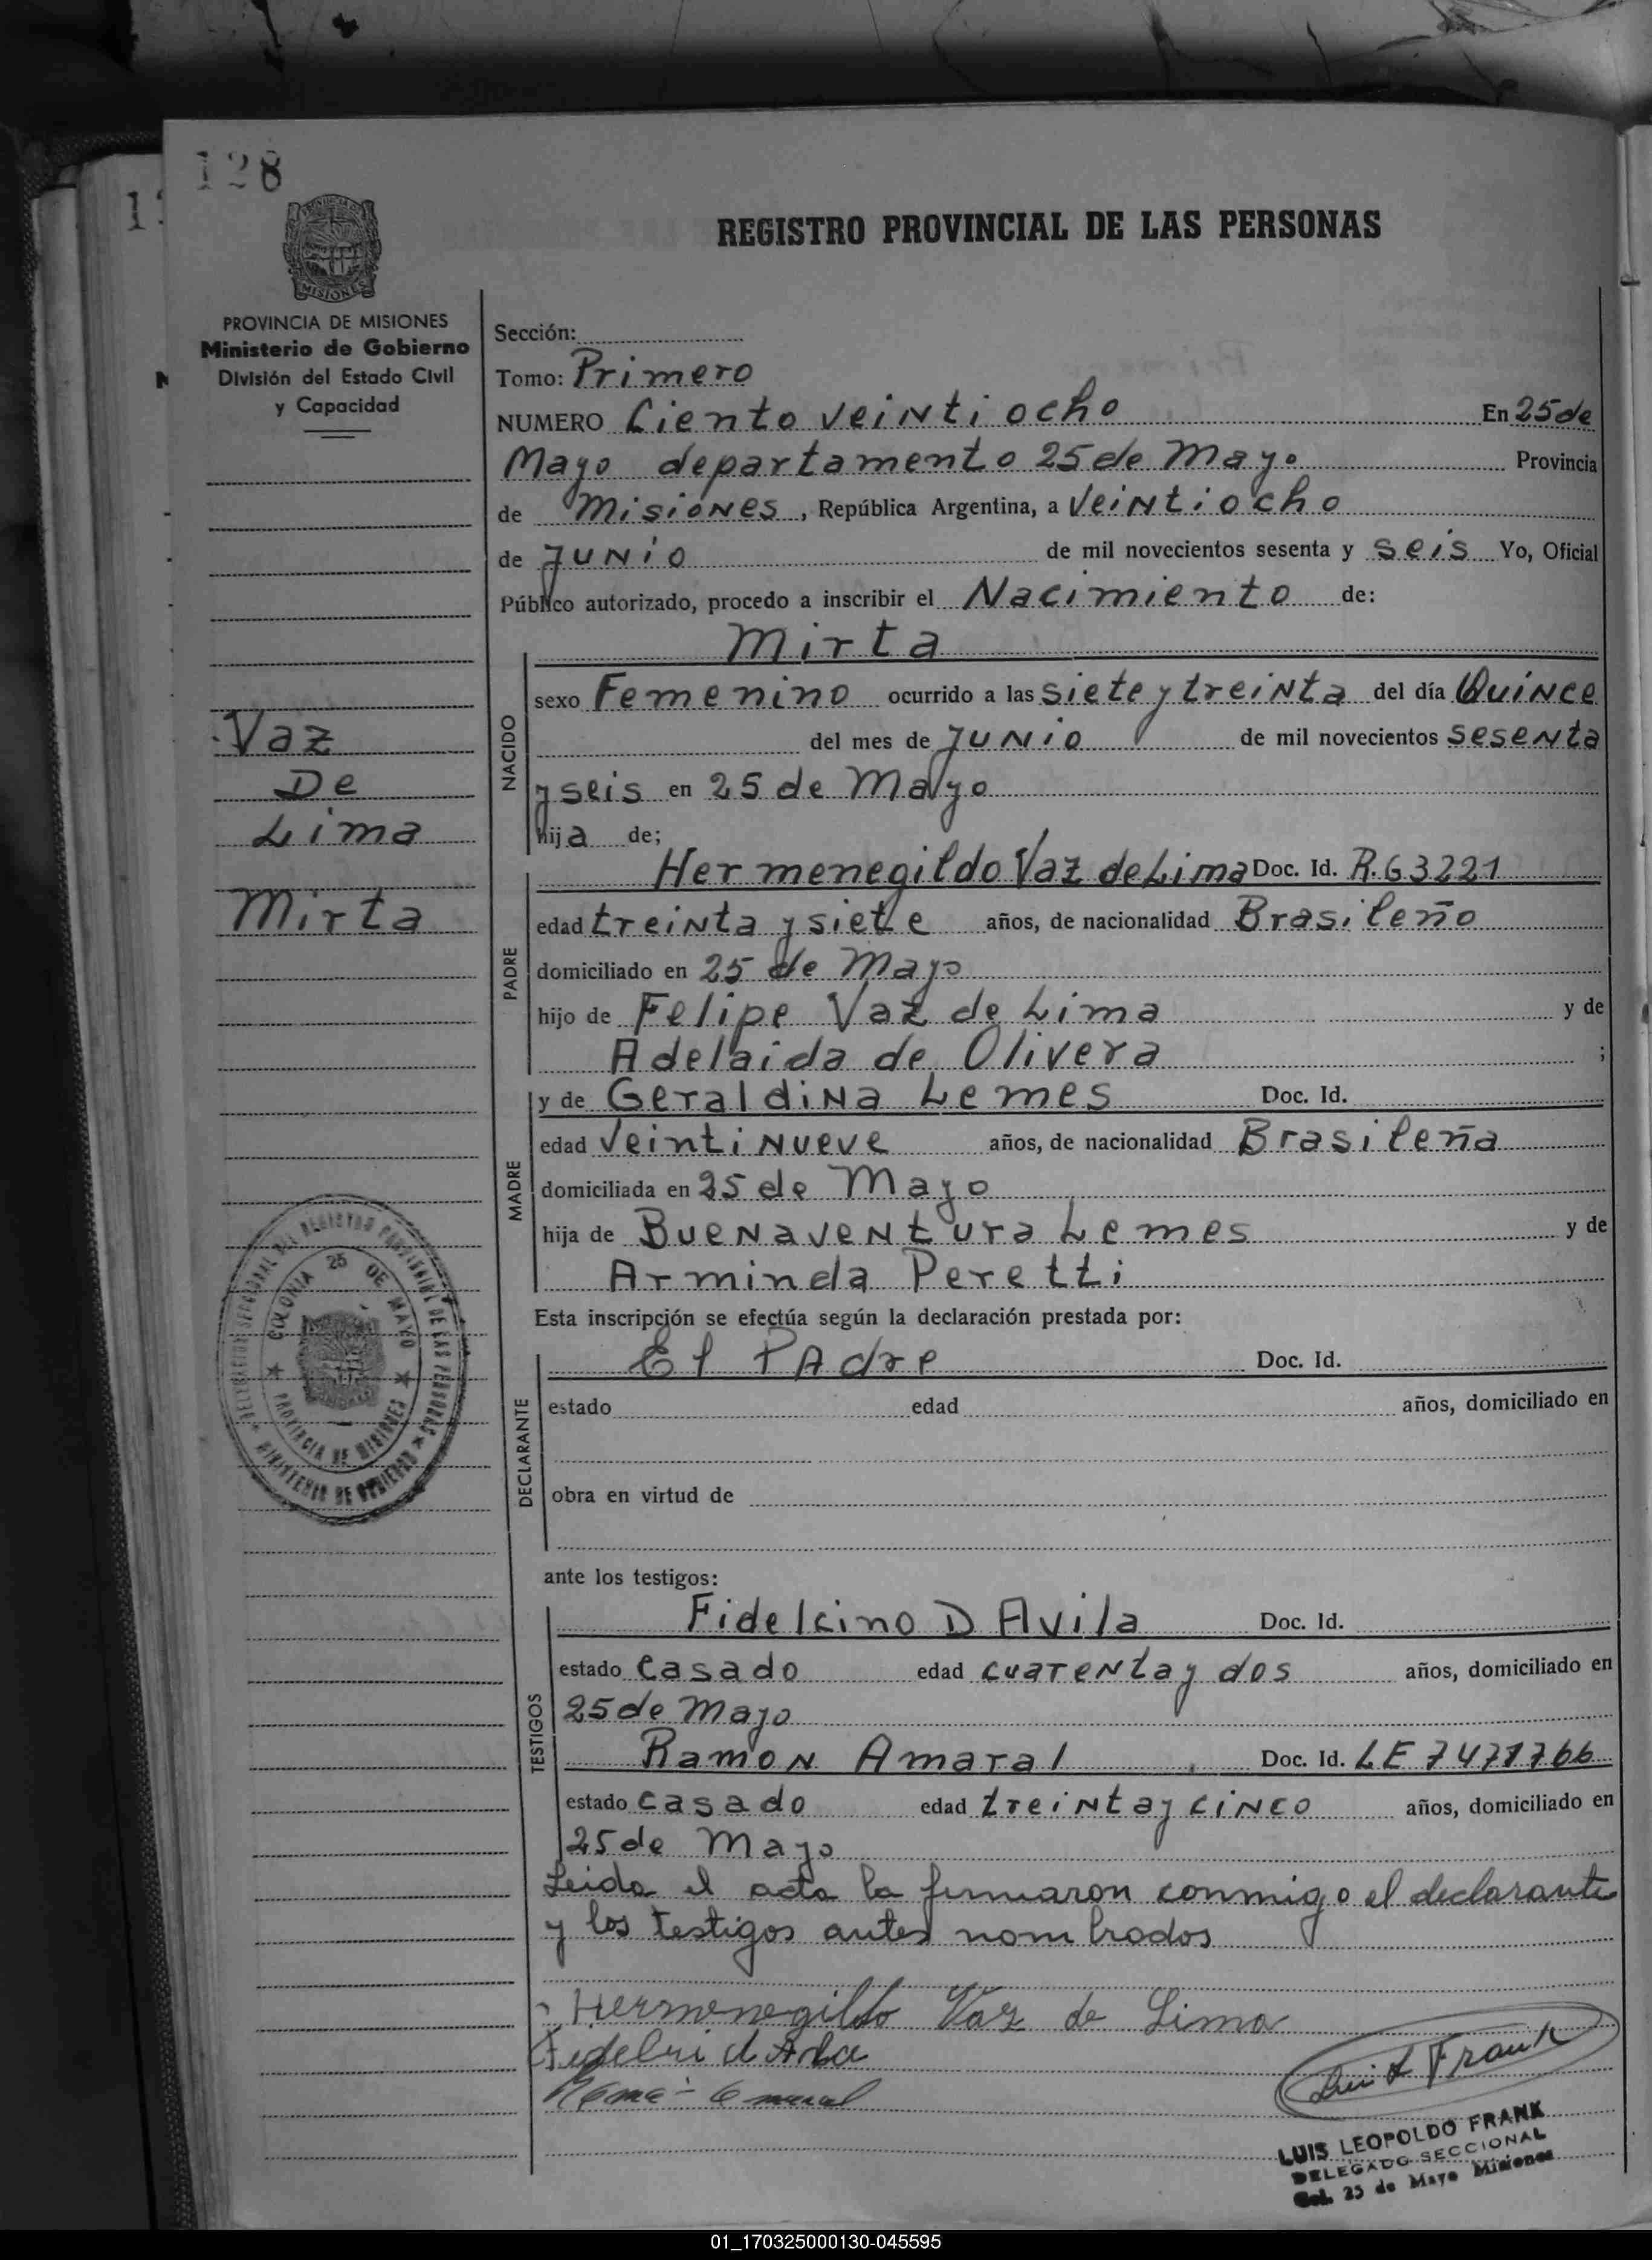 128
REGISTRO PROVINCIAL DE LAS PERSONAS
MISIONES
PROVINCIA DE MISIONES
Ministerio de Gobierno
División del Estado Civil
y Capacidad
Vaz
De
Lima
Mirta
COLONIA 25 DE MAYO
PROVINCIA DE MISIONES
MINISTERIO DE GOBIERNO
Sección:
Tomo: Primero
NUMERO Ciento veintiocho En 25 de
Mayo departamento 25 de Mayo Provincia
de Misiones, República Argentina, a veintiocho
de Junio de mil novecientos sesenta y seis Yo, Oficial
Público autorizado, procedo a inscribir el Nacimiento de:
Mirta
NACIDO
sexo Femenino ocurrido a las siete y treinta del día Quince
del mes de Junio de mil novecientos sesenta
y seis en 25 de Mayo
hija de;
PADRE
Hermenegildo Vaz de Lima Doc. Id. R.63221
edad treinta y siete años, de nacionalidad Brasileño
domiciliado en 25 de Mayo
hijo de Felipe Vaz de Lima y de
Adelaida de Olivera ;
MADRE
y de Geraldina Lemes Doc. Id.
edad veintinueve años, de nacionalidad Brasileña
domiciliada en 25 de Mayo
hija de Buenaventura Lemes y de
Arminda Peretti
Esta inscripción se efectúa según la declaración prestada por:
DECLARANTE
El Padre Doc. Id.
estado edad años, domiciliado en
obra en virtud de
ante los testigos:
TESTIGOS
Fidelcino D Avila Doc. Id.
estado casado edad cuarenta y dos años, domiciliado en
25 de Mayo
Ramon Amaral Doc. Id. LE 7471766
estado casado edad treinta y cinco años, domiciliado en
25 de Mayo
Leida el acta la firmaron conmigo el declarante
y los testigos antes nombrados
Hermenegildo Vaz de Lima
Luis L Frank
LUIS LEOPOLDO FRANK
DELEGADO SECCIONAL
Col. 25 de Mayo Misiones
01_170325000130-045595